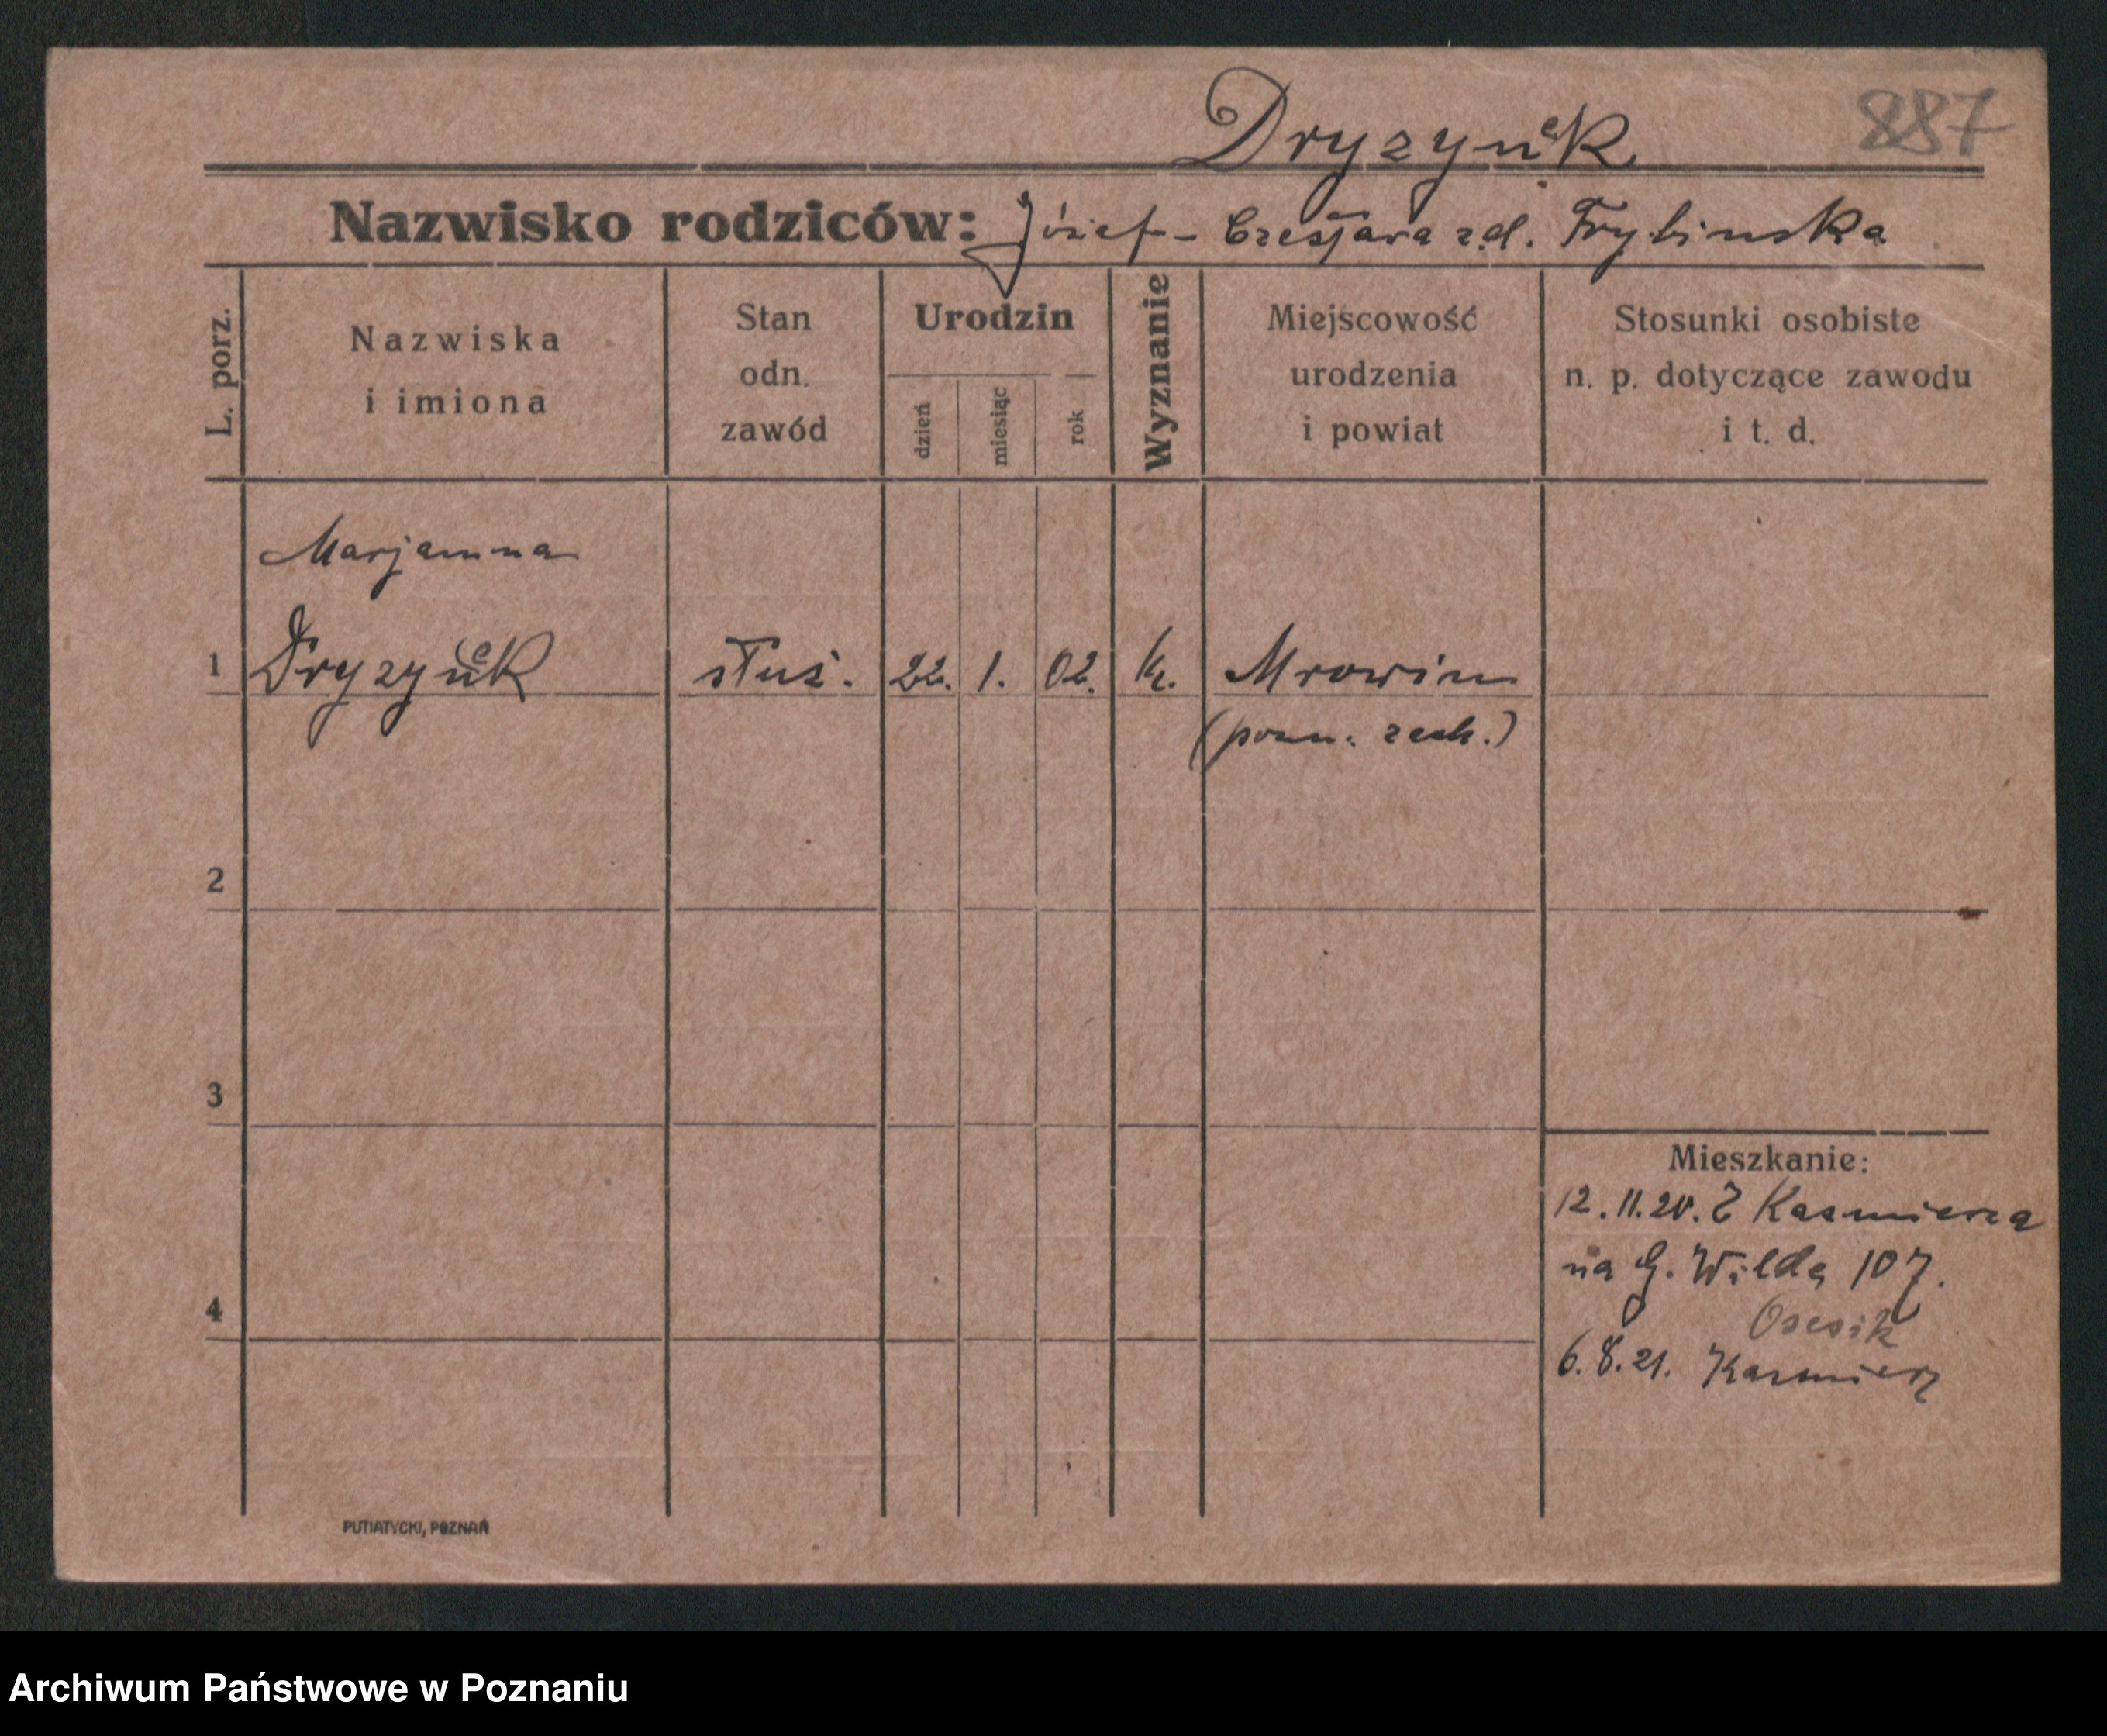 Dryzynek
887
Nazwisko rodziców: Józef - Czesława z d. Trybinska
L. porz.
Nazwiska i imiona
Stan odn. zawód
Urodzin
dzień
miesiąc
rok
Wyznanie
Miejscowość urodzenia i powiat
Stosunki osobiste n. p. dotyczące zawodu i t. d.
Marjanna
1 Dryzynek służ. 22. 1. 02. k. Mrowino
(pozn. zach.)
2
3
4
Mieszkanie:
12.11.20. Z Kazmierza
na G. Wildę 107.
Osesik
6.8.21. Kazmierz
PUTIATYCKI, POZNAŃ
Archiwum Państwowe w Poznaniu